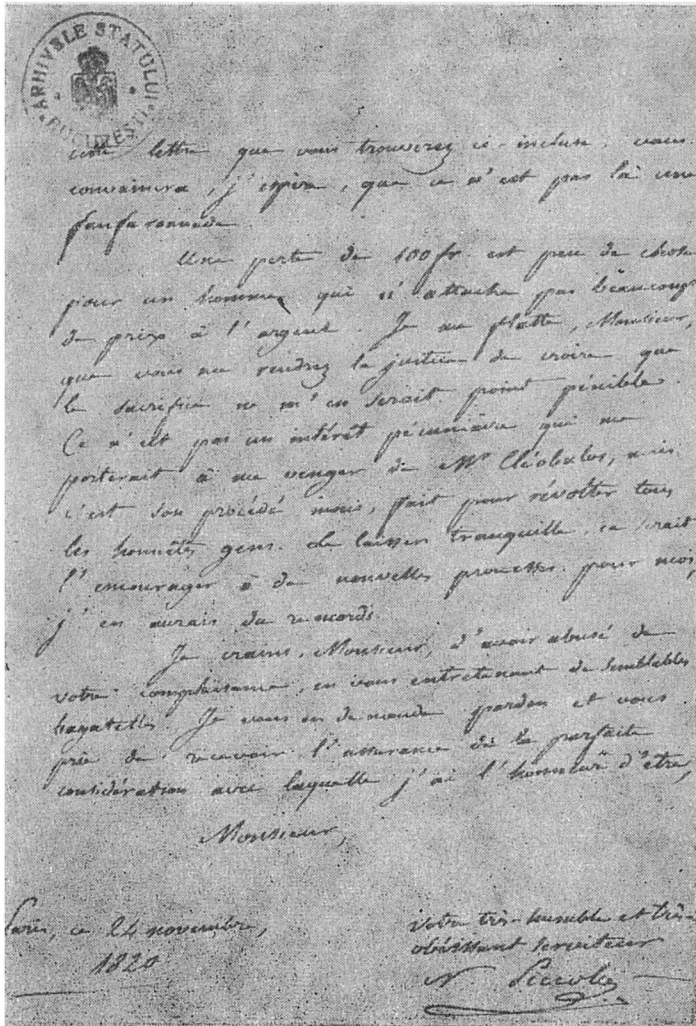 ARHIVELE STATULUI
BUCUREȘTI
cette lettre que vous trouverez ci-incluse, vous
convaincra, j'espère, que ce n'est pas là une
fanfaronnade.
Une perte de 100 fr. est peu de chose
pour un homme qui n'attache pas beaucoup
de prix à l'argent. Je me flatte, Monsieur,
que vous me rendrez la justice de croire que
le sacrifice ne m'en serait point pénible.
Ce n'est pas un intérêt pécuniaire qui me
porterait à me venger de Mr Cléobulos, mais
c'est son procédé inouï, fait pour révolter tous
les honnêtes gens. Le laisser tranquille, ce serait
l'encourager à de nouvelles prouesses. pour moi,
j'en aurais du remords.
Je crains, Monsieur, d'avoir abusé de
votre complaisance, en vous entretenant de semblables
bagatelles. Je vous en demande pardon et vous
prie de recevoir l'assurance de la parfaite
considération avec laquelle j'ai l'honneur d'être,
Monsieur,
Paris, ce 24 novembre,
1820
votre très-humble et très-
obéissant serviteur
N Piccolos